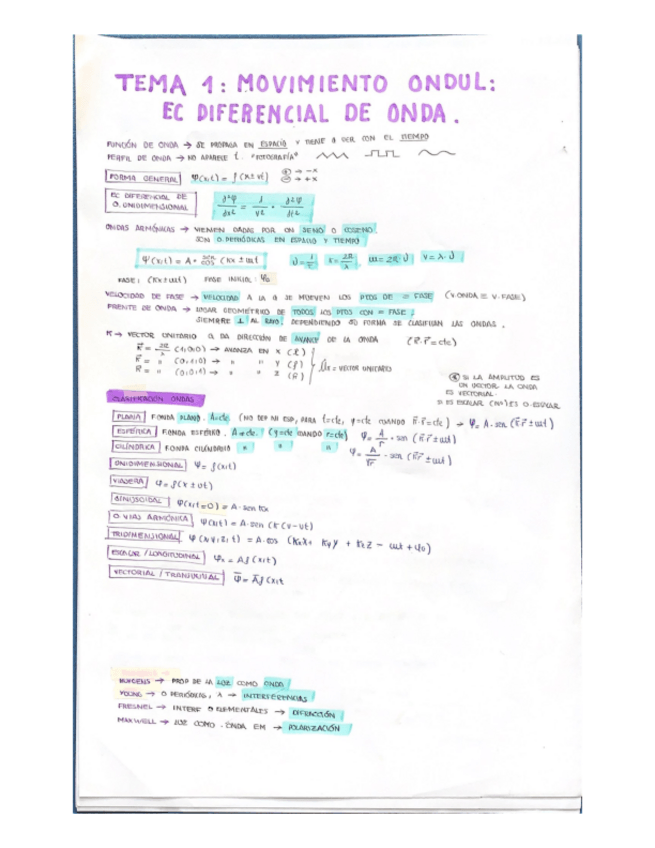 TEMA 1: MOVIMIENTO ONDUL:
EC DIFERENCIAL DE ONDA.
FUNCIÓN DE ONDA → SE PROPAGA EN ESPACIO Y TIENE Q VER CON EL TIEMPO
PERFIL DE ONDA → NO APARECE t. "FOTOGRAFÍA"
FORMA GENERAL Ψ(x,t) = f(x±vt) ⊕ → -x
⊖ → +x
EC DIFERENCIAL DE
O. UNIDIMENSIONAL
ONDAS ARMÓNICAS → VIENEN DADAS POR UN SENO O COSENO.
SON O. PERIÓDICAS EN ESPACIO Y TIEMPO
FASE: (Kx±ωt) FASE INICIAL: φ₀
VELOCIDAD DE FASE → VELOCIDAD A LA Q SE MUEVEN LOS PTOS DE = FASE (V.ONDA = V.FASE)
FRENTE DE ONDA → LUGAR GEOMÉTRICO DE TODOS LOS PTOS CON = FASE;
SIEMPRE ⊥ AL RAYO. DEPENDIENDO SU FORMA SE CLASIFICAN LAS ONDAS.
K → VECTOR UNITARIO Q DA DIRECCIÓN DE AVANCE DE LA ONDA (K·r = cte)
K = 2π/λ (1,0,0) → AVANZA EN X
K = " (0,1,0) → " " Y
K = " (0,0,1) → " " Z
= VECTOR UNITARIO
SI LA AMPLITUD ES
UN VECTOR LA ONDA
ES VECTORIAL.
SI ES ESCALAR (Nº) ES O. ESCALAR
CLASIFICACIÓN ONDAS
PLANA F.ONDA PLANO. A=cte.
ESFÉRICA F.ONDA ESFÉRICO.
CILÍNDRICA F.ONDA CILÍNDRICO " " "
UNIDIMENSIONAL Ψ = f(x,t)
VIAJERA Ψ = f(x ± vt)
SINUSOIDAL Ψ(x,t=0) = A·sen kx
ARMÓNICA Ψ(x,t) = A·sen
TRIDIMENSIONAL Ψ(x,y,z,t) = A·cos (Kxx + Kyy + Kzz − ωt + φ₀)
ESCALAR / LONGITUDINAL Ψx = Af(x,t)
VECTORIAL / TRANSVERSAL Ψ = Af(x,t
HUYGENS → PROP DE LA LUZ COMO ONDA
YOUNG → O PERIÓDICAS, λ → INTERFERENCIAS
FRESNEL → INTERF O ELEMENTALES → DIFRACCIÓN
MAXWELL → LUZ COMO ONDA EM → POLARIZACIÓN